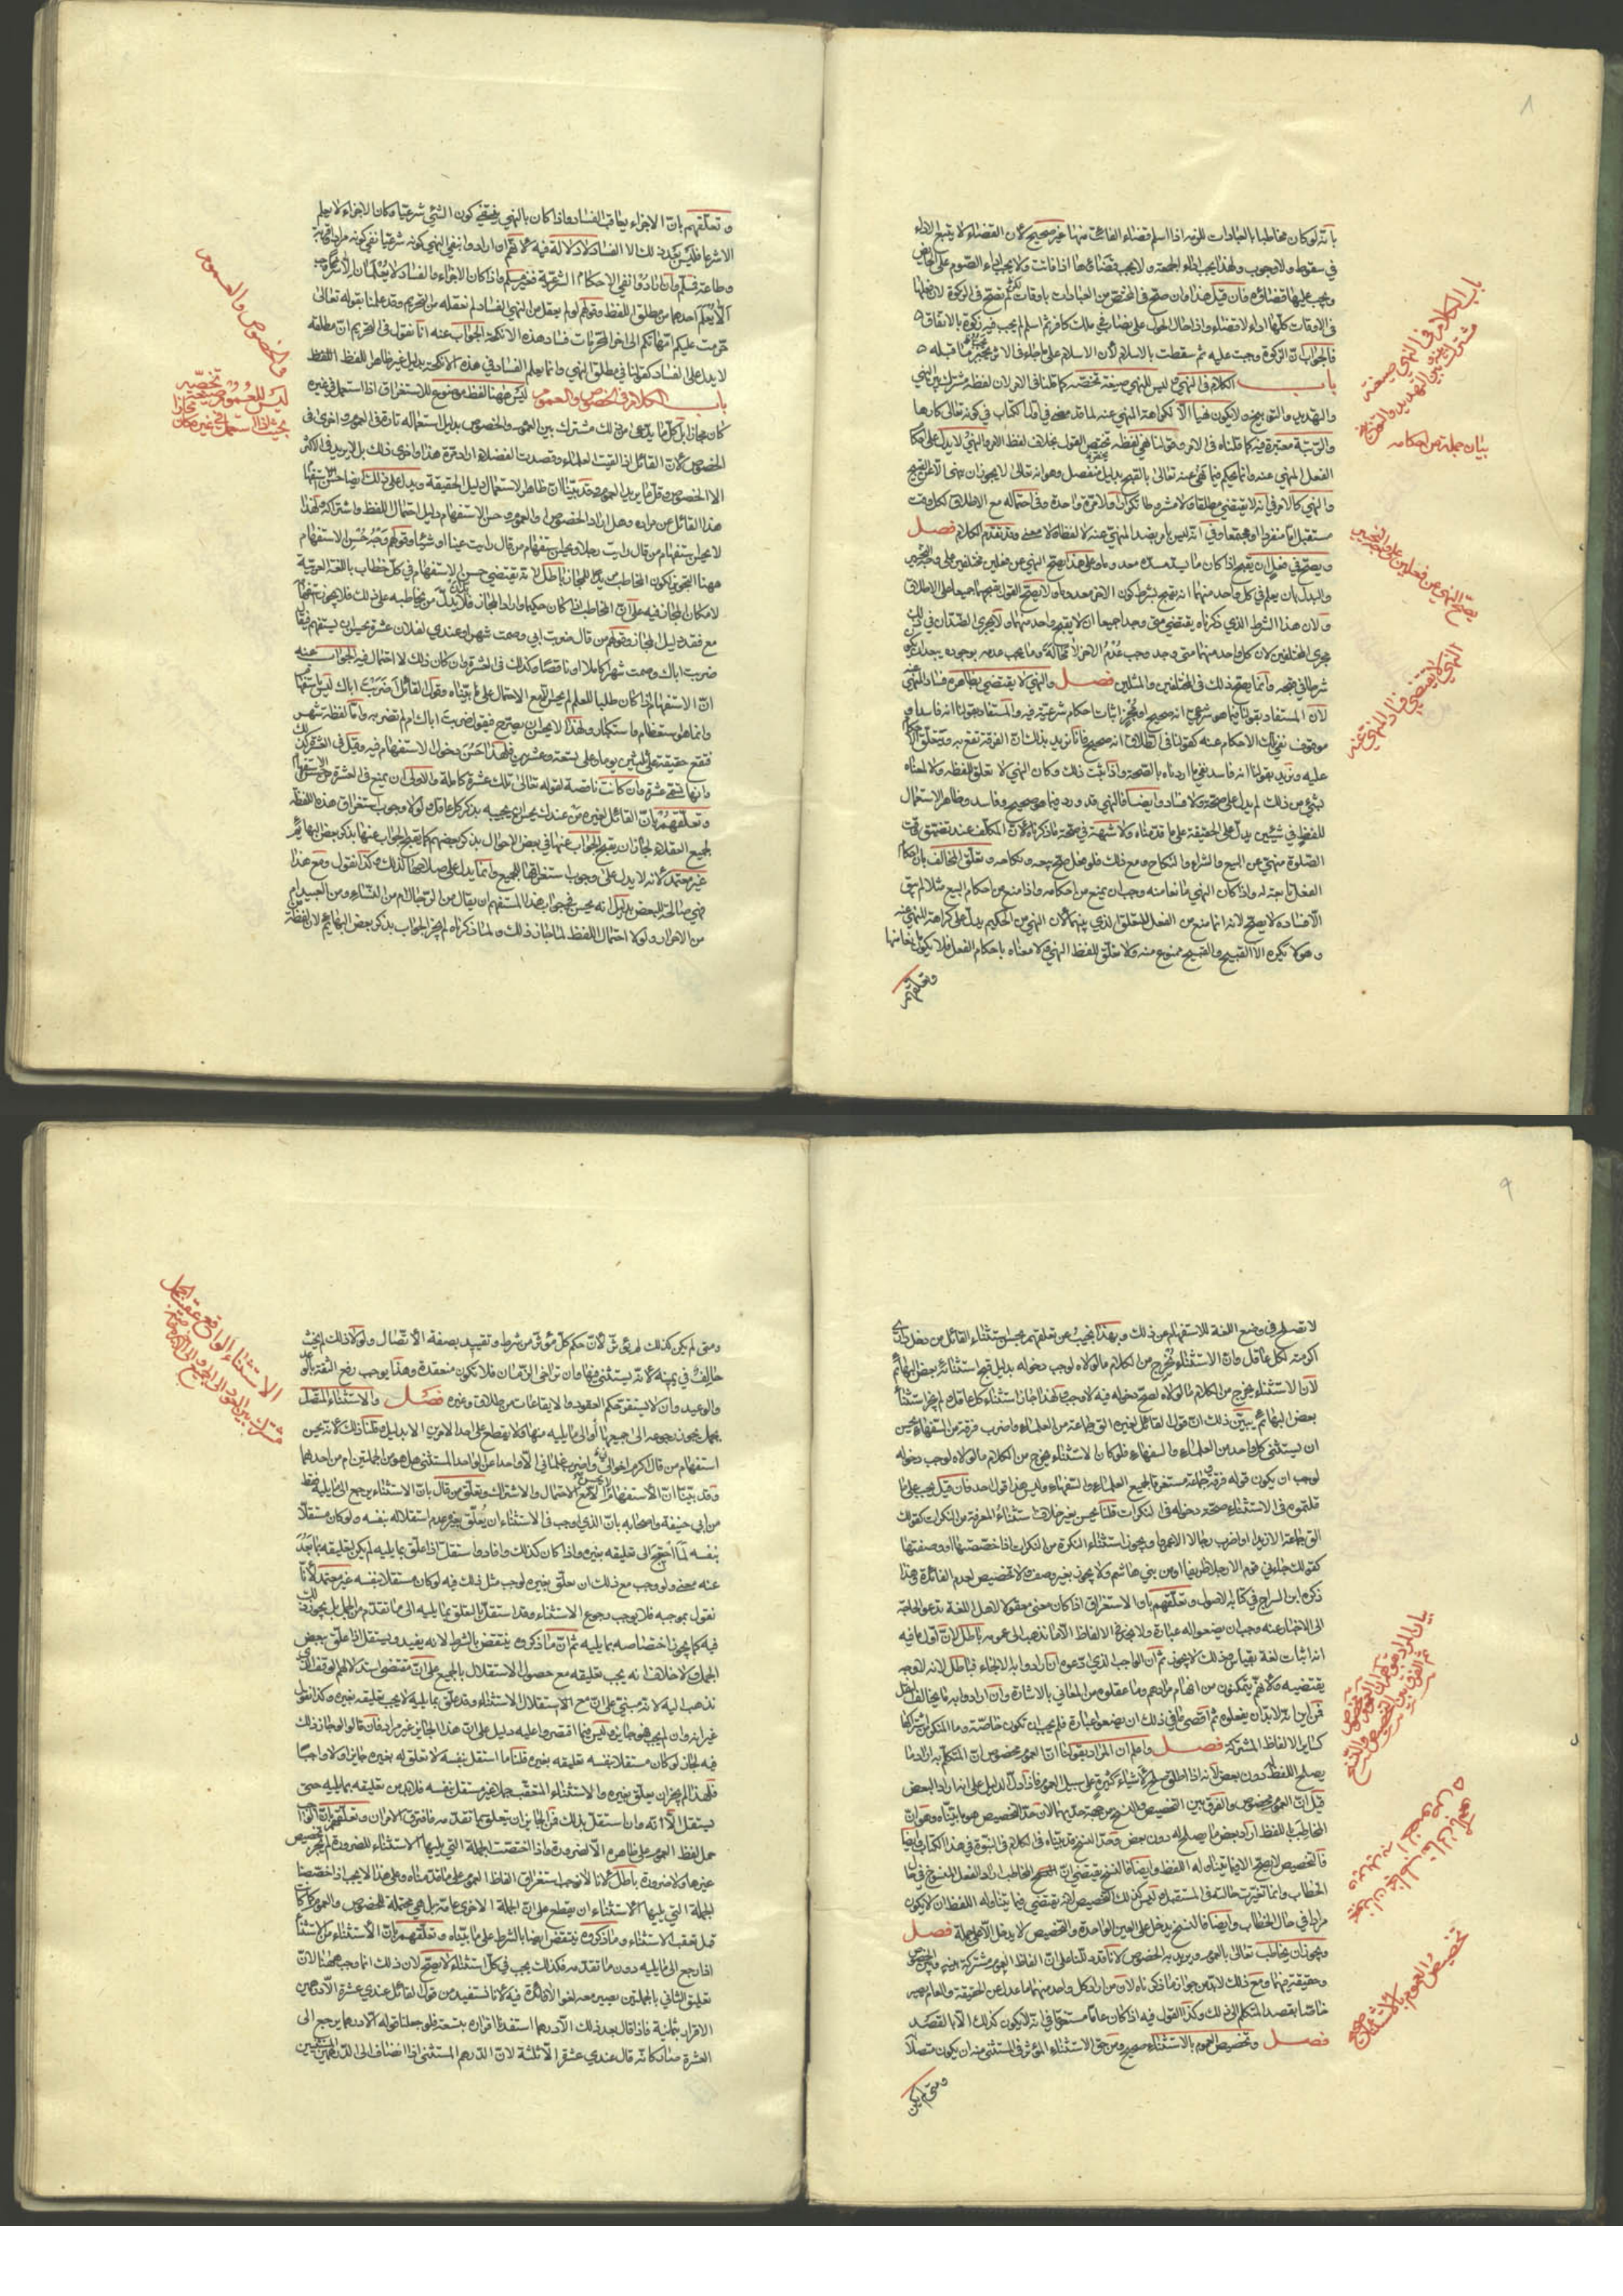 ٨
بأنه لو كان مخاطبا بالعبادات للزمه اذا اسلم قضاء الفائت منها غير صحيح لأن القضاء لا يتبع الاداء
في سقوط ولا وجوب ولهذا يجب اداء الجمعة ولا يجب قضاؤها اذا فاتت ولا يجب اداء الصوم على الحائض
ويجب عليها قضاؤه فان قيل هذا وان صح في المختص من العبادات باوقات لم يصح في الزكوة لان فعلها
في الاوقات كلها اداء لا قضاء واذا حال الحول على نصاب في ملك كافر ثم اسلم لم يجب فيه زكوة بالاتفاق
فالجواب ان الزكوة وجبت عليه ثم سقطت بالاسلام لأن الاسلام على ما جاء في الاثر يجب ما قبله
باب الكلام في النهي ليس للنهي صيغة تخصه كما قلنا في الامر لان لفظه مشترك بين النهي
والتهديد والتوبيخ ولا يكون نهيا الا لكراهة المنهي عنه لما قدمضى في اول الكتاب في كونه تعالى كارها
والرتبة معتبرة فيه كما قلناه في الامر وقولنا نهي لفظه تختص القول بخلاف لفظ الامر والنهي لا يدل على احكام
الفعل المنهي عنه وانما يحكم فيما نهى عنه تعالى بالقبح بدليل منفصل وهو انه تعالى لا يجوز ان ينهى الا عن القبيح
والنهي كالامر في انه لا يقتضي مطلقا ولا مشروطا تكرارا ولا مرة واحدة وفي احتماله مع الاطلاق لكل وقت
مستقبل اما منفردا او مجتمعا وفي انه ليس بامر بضد المنهي عنه لا لفظا ولا معنى وقد تقدم الكلام فصل
ويصح في فعل ان يقبح اذا كان ما يسد مسده معدوما وعلى هذا يصح النهي عن فعلين مختلفين على وجه التخيير
والبدل بان يعلم في كل واحد منهما انه يقبح بشرط كون الاخر معدوما ولا يصح القول بقبحهما جميعا على الاطلاق
ولان هذا الشرط الذي ذكرناه يقتضي متى وجدا جميعا ان لا يقبح واحد منهما ولا يجري الضدان في ذلك
مجرى المختلفين لان كل واحد منهما متى وجد وجب عدم الاخر لا محالة وما يجب عدمه بوجوده يبعد كونه
شرطا في قبحه وانما يصح ذلك في المختلفين والمثلين فصل والنهي لا يقتضي بظاهره فساد المنهي عنه
لان المستفاد بقولنا فيما هو شرعي انه صحيح او مجز اثبات احكام شرعية فيه والمستفاد بقولنا انه فاسد او
موقوف نفي تلك الاحكام عنه كقولنا في الطلاق انه صحيح فانا نريد بذلك ان الفرقة تقع به وتتعلق الاحكام
عليه ونريد بقولنا انه فاسد نفي ما اردناه بالصحة واذا ثبت ذلك وكان النهي لا تعلق للفظه ولا لمعناه
بشيء من ذلك لم يدل على صحة ولا فساد وايضا فالنهي قد ورد فيما هو صحيح وفاسد وظاهر الاستعمال
للفظ في شيئين يدل على الحقيقة على ما قدمناه ولا شبهة في صحة ما ذكرناه لأن المكلف عند تضيق وقت
الصلوة منهي عن البيع والشراء والنكاح ومع ذلك فلو فعل صح بيعه ونكاحه وتعلق المخالف بان احكام
الفعل تابعة له واذا كان النهي مانعا منه وجب ان يمنع من احكامه واذا منع من احكام البيع مثلا لم يبق
الا فساده لا يصح لانه انما منع من الفعل للتعلق الذي بينهما لأن النهي من الحكيم يدل على كراهة المنهي عنه
وهو لا يكره الا القبيح والقبيح ممنوع منه ولا تعلق للفظ النهي ولا معناه باحكام الفعل فلا يكون مانعا منها
وتعلقهم
باب الكلام في النهي صيغة
مشترك بين التهديد والتوبيخ
بيان جملة من احكامه
يصح النهي عن فعلين على التخيير
النهي لا يقتضي فساد المنهي عنه
وتعلقهم بان الاجزاء يعاقب الفساد واذا كان بالنهي ينتفي كون الشيء شرعيا وكان الاجزاء لا يعلم
الا شرعا فليس بعد ذلك الا الفساد لا دلالة فيه لأنهم ان ارادوا بنفي النهي كونه شرعيا نفي كونه مرادا وقربة
وطاعة فمسلم وان ارادوا نفي الاحكام الشرعية فغير مسلم واذا كان الاجزاء والفساد لا يعلمان الا شرعا وجب
الا يعلم احدهما من مطلق اللفظ وقولهم لو لم يعقل من النهي الفساد لم نعقله من التحريم وقد علمنا بقوله تعالى
حرمت عليكم امهاتكم الى اخر المحرمات فساد هذه الانكحة الجواب عنه انا نقول في التحريم ان مطلقه
لا يدل على الفساد كقولنا في مطلق النهي وانما يعلم الفساد في هذه الانكحة بدليل غير ظاهر اللفظ
باب الكلام في الخصوص والعموم ليس ههنا لفظ موضوع للاستغراق اذا استعمل في غيره
كان مجازا بل كل ما يدعى من ذلك مشترك بين العموم والخصوص بدليل استعماله تارة في العموم واخرى في
الخصوص لأن القائل اذا قال لقيت العلماء وقصدت الفضلاء اراد مرة هذا واخرى ذلك بل لا يريد في الاكثر
الا الخصوص وقل ما يريد العموم وقد بينا ان ظاهر الاستعمال دليل الحقيقة ويدل على ذلك ايضا حسن استفهام
هذا القائل عن مراده وهل اراد الخصوص او العموم وحسن الاستفهام دليل احتمال اللفظ واشتراكه ولهذا
لا يحسن استفهام من قال رأيت رجلا ويحسن استفهام من قال رأيت عينا او شيئا وقولهم وجه حسن الاستفهام
ههنا التجويز لكون المخاطب مريدا للمجاز باطل لانه يقتضي حسن الاستفهام في كل خطاب باللغة العربية
لامكان المجاز فيه على ان المخاطب اذا كان حكيما واراد المجاز فلا بد ان يدل من يخاطبه على ذلك فلا يجوز استفهامه
مع فقد دليل المجاز وقولهم من قال ضربت ابي وصمت شهرا وعندي لفلان عشرة يحسن ان يستفهم فيقال
ضربت اباك وصمت شهرا كاملا او ناقصا وكذلك في العشرة وان كان ذلك لا احتمال فيه الجواب عنه
ان الاستفهام اذا كان طلبا للعلم لم يحسن الا مع الاحتمال على ما بيناه وقول القائل أضربت اباك ليس باستفهام
وانما هو استعظام واستكبار ولهذا لا يحسن ان يصرح فيقول ضربت اباك ام لم تضربه واما لفظة شهر
فتقع حقيقة على الثلثين يوما وعلى تسعة وعشرين فلهذا حسن دخول الاستفهام فيه وقيل في العشرة كذلك
وتعلقهم بان القائل لغيره من عندك يحسن ان يجيبه بذكر كل عاقل ولولا وجوب استغراق هذه اللفظة
لجميع العقلاء لجاز ان يقبح الجواب عنها في بعض الاحوال بذكر بعضهم كما يقبح الجواب عنها بذكر بعض البهائم
غير معتمد لانه لا يدل على وجوب استغراقها للجميع وانما يدل على صلاحها لذلك وكذا نقول ومع هذا
فهي صالحة للبعض بدليل انه يحسن في جواب هذا المستفهم ان يقال من الرجال ام من النساء ومن العبيد ام
من الاحرار ولولا احتمال اللفظ لما جاز ذلك ولما ذكرناه لم يجز الجواب بذكر بعض البهائم لان لفظة من
والخصوص والعموم
ليس للعموم صيغة تخصه
بحيث اذا استعمل في غيره كان مجازا
٩
لا تصلح في وضع اللغة للاستفهام عن ذلك وبهذا يجيب عن تعلقهم بحسن استثناء القائل من دخل داري
اكرمته لكل عاقل وان الاستثناء يخرج من الكلام ما لولاه لوجب دخوله بدليل قبح استثنائه بعض البهائم
لان الاستثناء يخرج من الكلام ما لولاه لصح دخوله فيه لا وجب ولهذا جاز استثناء كل عاقل ولم يجز استثناء
بعض البهائم يبين ذلك ان قول القائل لغيره الق جماعة من العلماء واضرب فرقة من السفهاء يحسن
ان يستثنى كل واحد من العلماء والسفهاء فلو كان الاستثناء يخرج من الكلام ما لولاه لوجب دخوله
لوجب ان يكون قوله فرقة وجماعة مستغرقا لجميع العلماء والسفهاء وليس هذا قول احد فان قيل يجب على ما
قلتموه في الاستثناء صحة دخوله في النكرات قلنا يحسن بغير خلاف استثناء المعرفة من النكرات كقولك
الق جماعة الا زيدا واضرب رجالا الا عمرا ويجوز استثناء النكرة من النكرات اذا خصصتها او وصفتها
كقولك جاءني قوم الا رجلا ظريفا او من بني هاشم ولا يجوز بغير وصف ولا تخصيص لعدم الفائدة وهذا
ذكره ابن السراج في كتابه الاصول وتعلقهم بان الاستغراق اذا كان معنى معقولا لاهل اللغة تدعو الحاجة
الى الاخبار عنه وجب ان يضعوا له عبارة ولا يجري هذه الالفاظ الا ما نذهب الى عمومه باطل لان اول ما فيه
انه اثبات لغة بقياس وذلك لا يجوز ثم ان الواجب الذي ادعوه ان ارادوا به الالجاء فباطل لانه لا وجه
يقتضيه ولأنهم يتمكنون من افهام مرادهم وما عقلوه من المعاني بالاشارة وان ارادوا به ما يخالف الالجاء
فمن اين انه لا بد ان يفعلوه ثم اقصى ما في ذلك ان يضعوا عبارة فلم يجب ان تكون خاصة وما المنكر من اشتراكها
كسائر الالفاظ المشتركة فصل واعلم ان المراد بقولنا ان العموم مخصوص ان المتكلم به اراد ما
يصلح اللفظ له دون بعض لانه اذا اطلق صلح لاشياء كثيرة على سبيل العموم فاذا دل الدليل على انه اراد البعض
قيل ان العموم مخصوص والفرق بين التخصيص والنسخ من جهة حديهما لان حد التخصيص هو ما بيناه وهو ان
المخاطب باللفظ اراد بعض ما يصلح له دون بعض وحد النسخ قد بيناه في الكلام في النبوة في هذا الكتاب وايضا
فالتخصيص لا يصح الا فيما يتناوله اللفظ وايضا فالنسخ يقتضي ان المخاطب اراد الفعل المنسوخ في حال
الخطاب وانما تغيرت حالته في المستقبل وليس كذلك التخصيص لانه يقتضي فيما يتناوله اللفظ ان لا يكون
مرادا في حال الخطاب وايضا فالنسخ يدخل على العين الواحدة والتخصيص لا يدخل الا على جملة فصل
ويجوز ان يخاطب تعالى بالعموم ويريد به الخصوص لانا قد دللنا على ان الفاظ العموم مشتركة بينه وبين الخصوص
وحقيقة فيهما ومع ذلك لا بد من جواز ما ذكرناه لان من اراد كل واحد منهما ما عدل عن الحقيقة والعام يصير
خاصا بقصد المتكلم الى ذلك وكذا القول فيه اذا كان عاما مستغرقا في انه لا يكون كذلك الا بالقصد
فصل وتخصيص العموم بالاستثناء صحيح ومن حق الاستثناء المؤثر في المستثنى منه ان يكون متصلا
ومتى لم يكن
بيان المراد من قولهم ان العموم مخصوص
ثم الفرق بين التخصيص والنسخ
تخصيص العموم بالاستثناء صحيح
ومتى لم يكن كذلك لم يؤثر لأن حكم كل مؤثر من شرط وتقييد بصفة الاتصال ولولا ذلك لم يحنث
حالف في يمينه لأنه يستثني فيها وان تراخى الزمان فلا تكون منعقدة وهذا يوجب رفع الثقة بالوعد
والوعيد وان لا يستقر حكم العقود والايقاعات من طلاق وغيره فصل والاستثناء المتصل
بجمل يجوز رجوعه الى جميعها او الى ما يليه منها ولا يقطع على احد الامرين الا بدليل وقلنا ذلك لأنه يحسن
استفهام من قال اكرم اخواني واضرب غلماني الا واحدا عن الواحد المستثنى هل هو من الجملتين ام من احدهما
وقد بينا ان الاستفهام لا يحسن الا مع الاحتمال والاشتراك وتعلق من قال بان الاستثناء يرجع الى ما يليه فقط
من ابي حنيفة واصحابه بان الذي اوجب في الاستثناء ان يعلق بغيره عدم استقلاله بنفسه ولو كان مستقلا
بنفسه لما احتج الى تعليقه بغيره واذا كان كذلك وافاد واستقل اذا علق بما يليه لم يكن لتعليقه بما بعد
عنه معنى ولو وجب مع ذلك ان يعلق بغيره لوجب مثل ذلك فيه لو كان مستقلا بنفسه غير معتمد لأنا
نقول بموجبه فلا يوجب رجوع الاستثناء وقد استقل بالتعلق بما يليه الى ما تقدم من الجمل بل يجوز ذلك
فيه كما يجوز اختصاصه بما يليه ثم ان ما ذكروه ينتقض بالشرط لانه يفيد ويستقل اذا علق ببعض
الجمل ولا خلاف انه يجب تعليقه مع حصول الاستقلال بالجميع على ان مقتضى استدلالهم الوقف الذي
نذهب اليه لانه مبني على ان مع الاستقلال للاستثناء وقد علق بما يليه لا يجب تعليقه بغيره وكذا نقول
غير انه وان لم يجب فهو جايز وليس فيما اقتصروا عليه دليل على ان هذا الجايز غير مراد فان قالوا لو جاز ذلك
فيه لجاز لو كان مستقلا بنفسه تعليقه بغيره قلنا ما استقل بنفسه لا تعلق له بغيره جايزا ولا واجبا
فلهذا لم يجز ان يعلق بغيره والاستثناء المتعقب جملا غير مستقل بنفسه فلا بد من تعليقه بما يليه حتى
يستقل الا انه وان استقل بذلك فمن الجايز ان يتعلق بما تقدمه فافترق الامران وتعلقهم بان الواجب
حمل لفظ العموم على ظاهره الا لضرورة واذا اختصت الجملة التي يليها الاستثناء للضرورة لم يجز تخصيص
غيرها ولا ضرورة باطل لأنا لا نوجب استغراق الفاظ العموم على ما قدمناه وعلى هذا لا يجب اذا خصصنا
الجملة التي يليها الاستثناء ان يقطع على ان الجملة الاخرى عامة بل هي محتملة للخصوص والعموم كما كانت
قبل تعقب الاستثناء وما ذكروه ينتقض ايضا بالشرط على ما بيناه وتعلقهم بان الاستثناء من الاستثناء
اذا رجع الى ما يليه دون ما تقدمه فكذلك يجب في كل استثناء لا يصح لان ذلك انما وجب ههنا لان
تعليق الثاني بالجملتين يصير معه لغوا لا فائدة فيه لأنا نستفيد من قول القائل عندي عشرة الا درهمين
الاقرار بثمانية فاذا قال بعد ذلك الا درهما استفدنا اقراره بتسعة فلو جعلنا قوله الا درهما يرجع الى
العشرة صار كانه قال عندي عشرة الا ثلثة لان الدرهم المستثنى اذا انضاف الى الدرهمين المستثنيين
الاستثناء الواقع عقيب الجمل